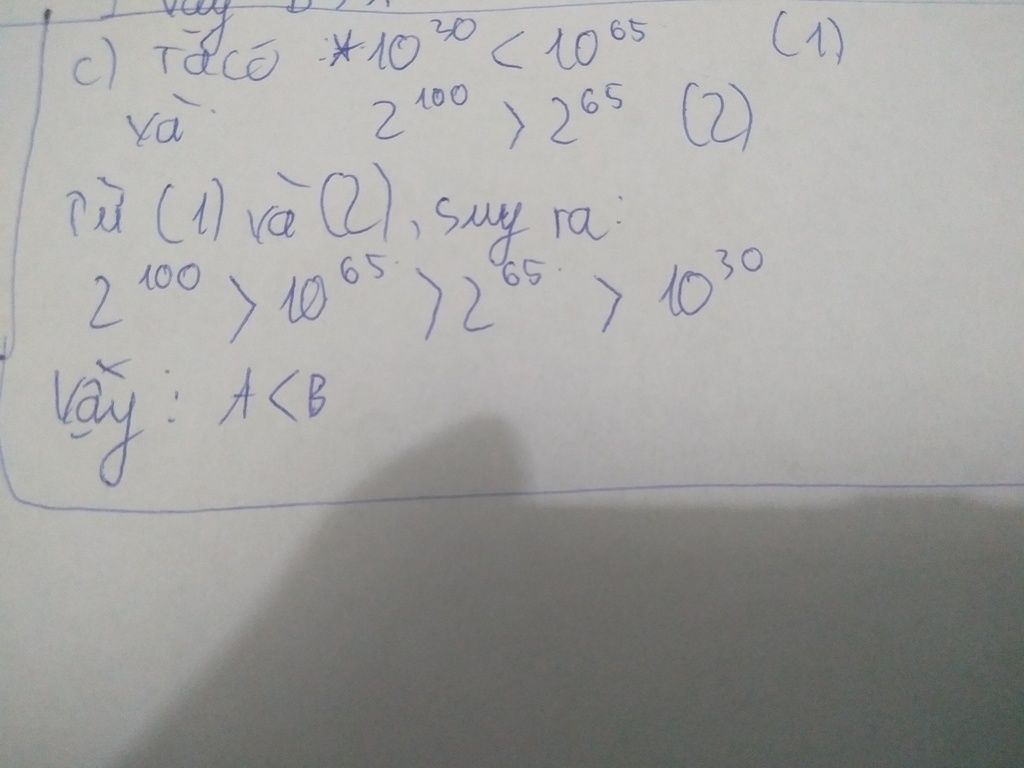 Vậy B > A
c) Ta có : *10^30 < 10^65 (1)
Và 2^100 > 2^65 (2)
Từ (1) và (2), suy ra:
2^100 > 10^65 > 2^65 > 10^30
Vậy : A < B